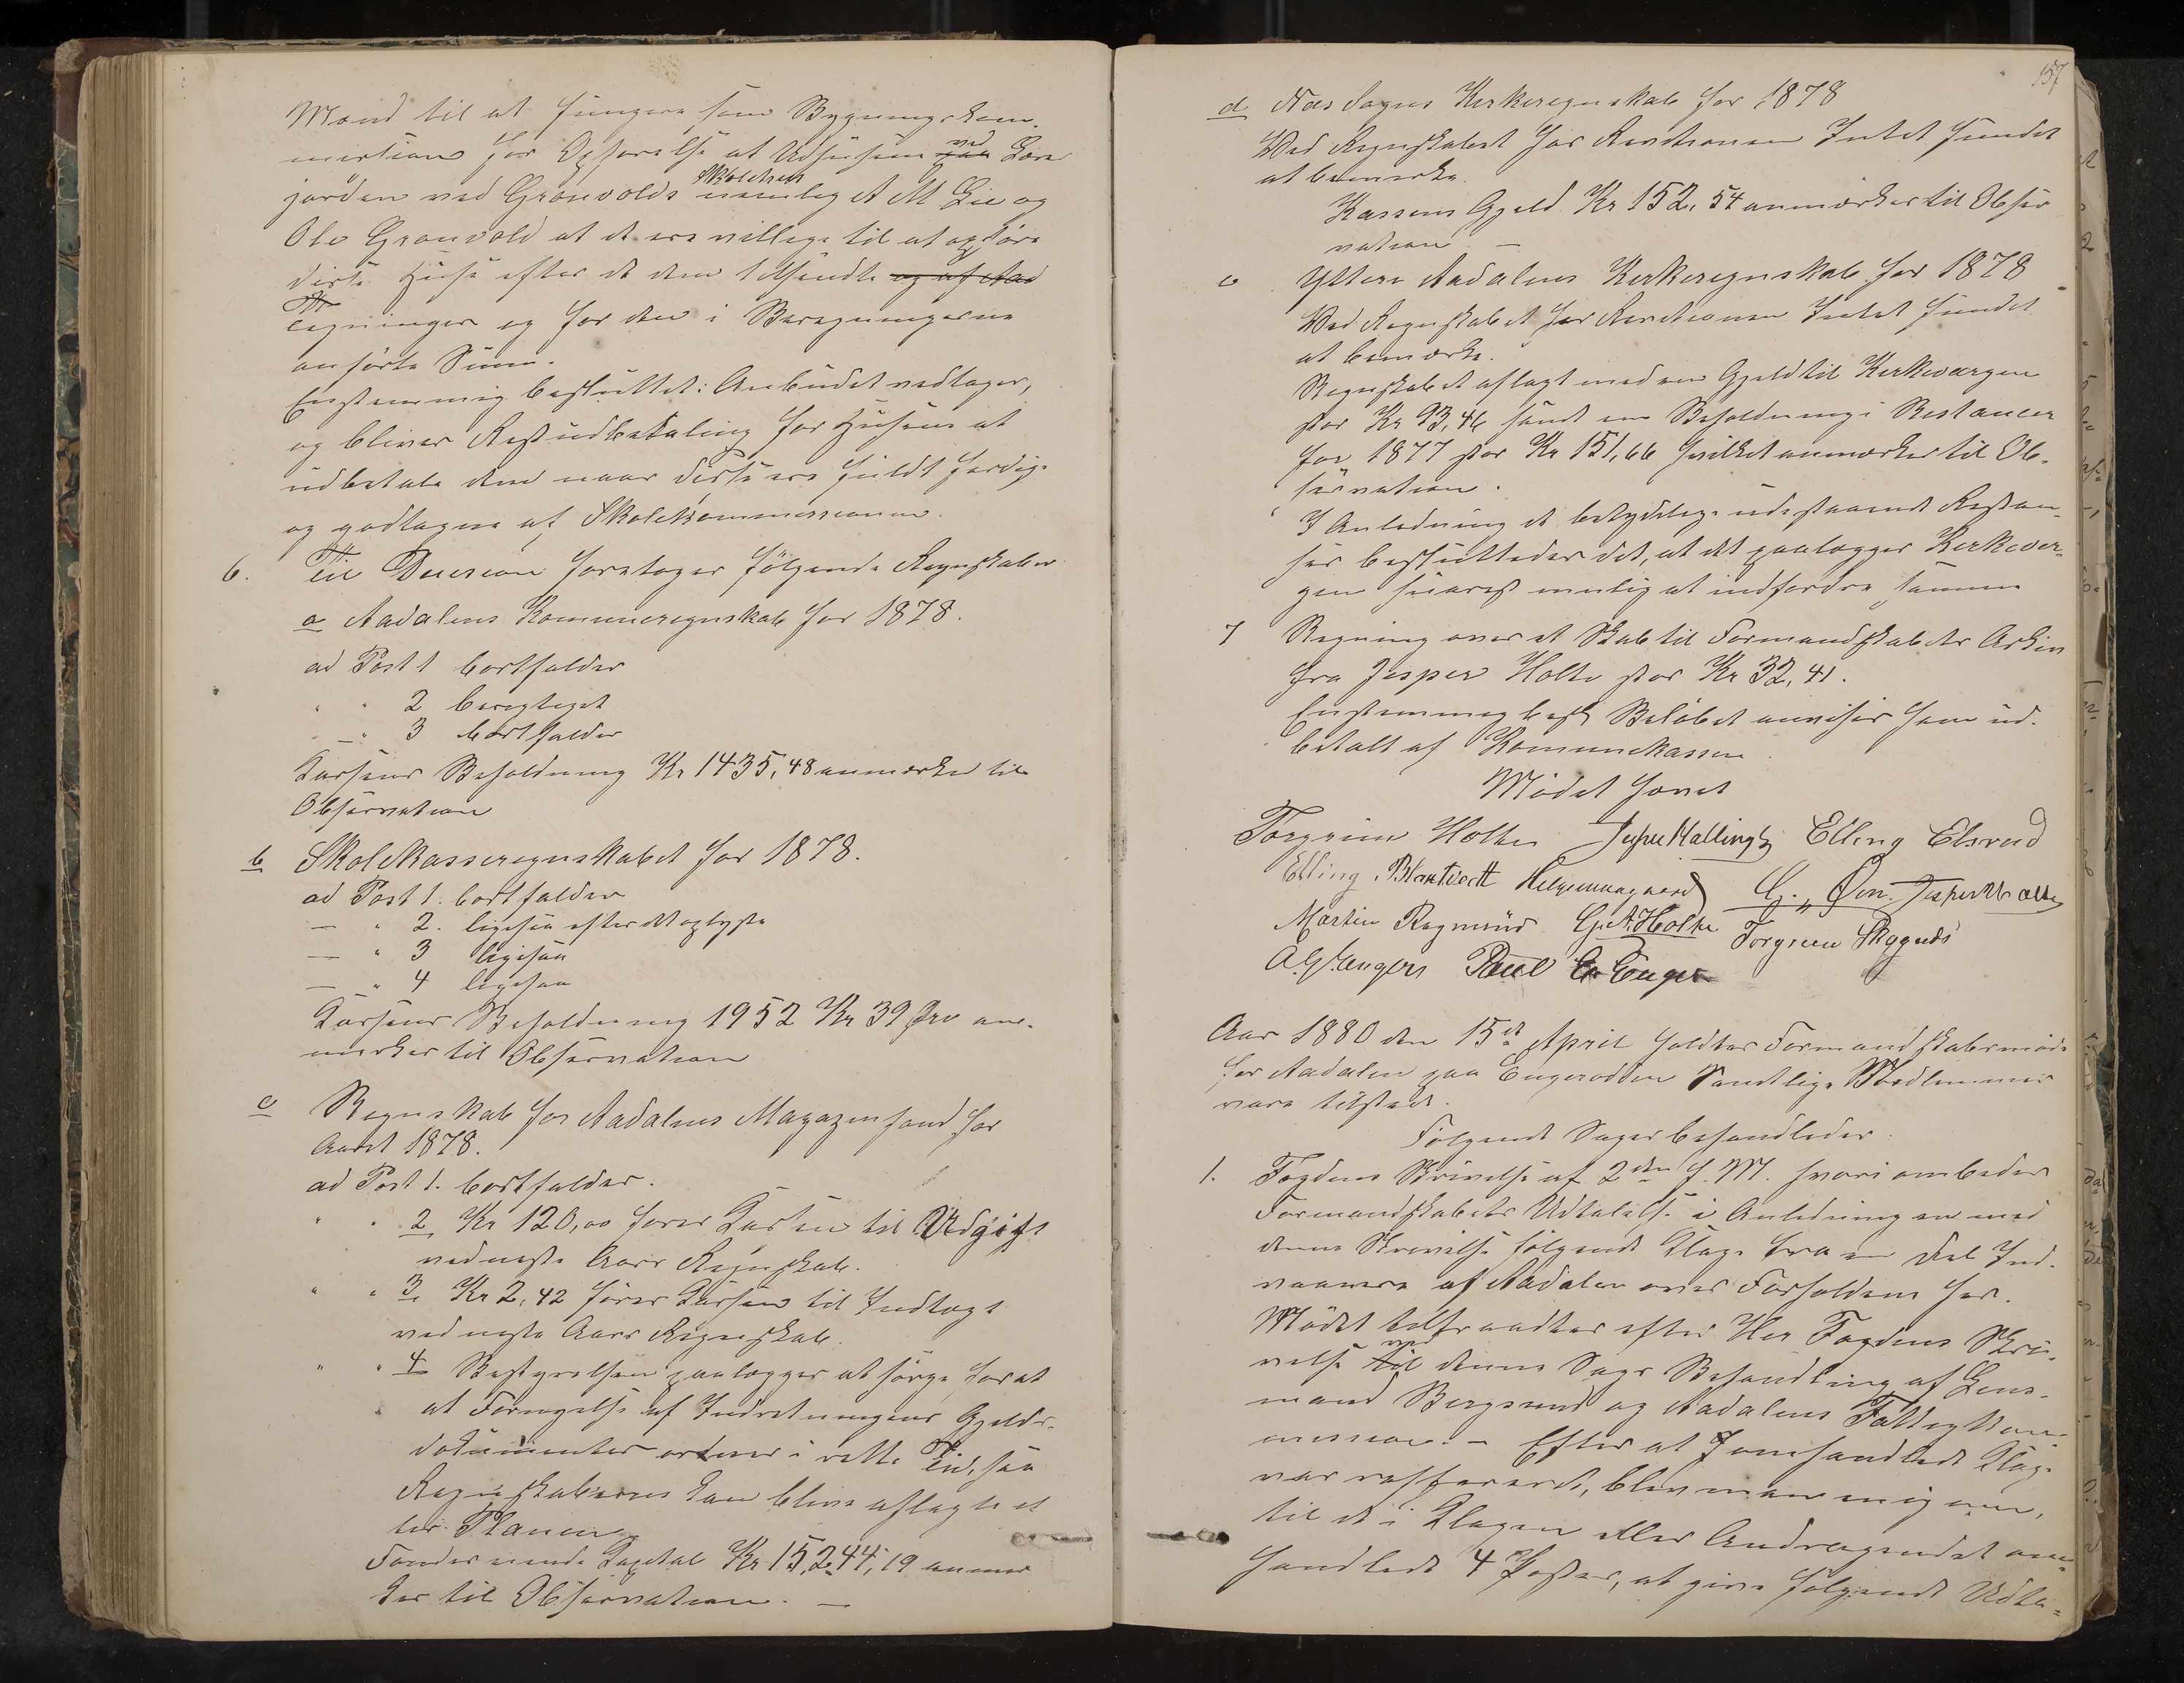 Mænd til at fungere som Bygningskom-
mission for Opførelse af Udhusene ved paa Lærer
jorden ved Grønvolds Skolehus nemlig A M Lie og
Ole Grønvold at de ere villige til at opføre
disse Huse efter de dem tilsendte og af
Tegninger og for den i Beregningerne
anførte Sum.
Enstemmig besluttet: Anbudet vedtages,
og bliver Restudbetaling for Husene at
udbetale dem naar disse ere fuldt færdige
og godtagne af Skolekommissionen.
6. Til Decision foretoges følgende Regnskaber
a Aadalens Kommuneregnskab for 1878.
ad Post 1 bortfalder
" " 2 berigtiget
" " 3 bortfalder
Kassens Beholdning Kr 1435,48 anmærkes til
Observation
b Skolekasseregnskabet for 1878.
ad Post 1. bortfalder
— " 2. ligesaa efter det oplyste
— " 3 ligesaa
— " 4 ligesaa
Kassens Beholdning 1952 Kr 39 Øre an-
mærkes til Observation
c Regnskab for Aadalens Magazinfond for
Aaret 1878.
ad Post 1. bortfalder.
" " 2 Kr 120,00 fører Kassen til Udgift
ved næste Aars Regnskab.
" " 3. Kr 2,42 fører Kassen til Indtægt
ved næste Aars Regnskab.
" " 4 Bestyrelsen paalægges at sørge for at
at Fornyelse af Indretningens Gjelds-
dokumenter ordnes i rette Tid, saa
Regnskaberne kan blive aflagte ef
ter Planen
Fondets Kapital Kr 15,244,19 anmær
kes til Observation. —
157
d Næs Sogns Kirkeregnskab for 1878
Ved Regnskabet har Revisionen Intet fundet
at bemærke.
Kassens Gjæld Kr 152,54 anmærkes til Obser
vation —
e Ytere Aadalens Kirkeregnskab for 1878
Ved Regnskabet har Revisionen Intet fundet
at bemærke.
Regnskabet aflagt med en Gjeld til Kirkeværgen
stor Kr 93,46 samt en Beholdning i Restancer
for 1877 stor Kr 151,66 hvilket anmærkes til Ob-
servation.
I Anledning de betydelige udestaaende Restan-
ser besluttedes det, at det paalægges Kirkever-
gen snarest mulig at indfordre samme
7 Regning over et Skab til Formandskabets Arkiv
fra Jesper Holte stor Kr 32,41.
Enstemmig besl. Beløbet anvises som ud-
betalt af Kommunekassen.
Mødet hævet
Torgrim Holte Elling Elsrud
Elling Blaktvedt G. Øen. Jesper Holte
Martin Ragnrud G. A. Holte Torgrim Skagnæs
A G Engers Poul E Enger
Aar 1880 den 15de April holdtes Formandskabsmøde
for Aadalen paa Engerodden Samtlige Medlemmer
vare tilstede.
Følgende Sager behandledes:
1. Fogdens Skrivelse af 2den f. M. hvori ombedes
Formandskabets Udtalelse i Anledning en med
denne Skrivelse følgende Klage fra en Del Ind-
vaanere af Aadalen over Forholdene her.
Mødet tiltraadtes efter Her Fogdens Skri-
velse til ved denne Sags Behandling af Lens-
mand Bergsund og Aadalens Fattigkom-
mission. – Efter at omhandlede Klage
var refereret, blev man enig om,
til de i Klagen eller Andragendet om-
handlede 4 Poster, at give følgende Udta-